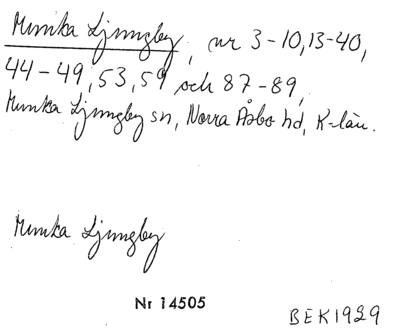 Munka Ljungby, nr 3-10, 13-40,
44-49, 53, 59 och 87-89,
Munka Ljungby sn, Norra Åsbo hd, K-län.
Munka Ljungby
Nr 14505
BEK1929